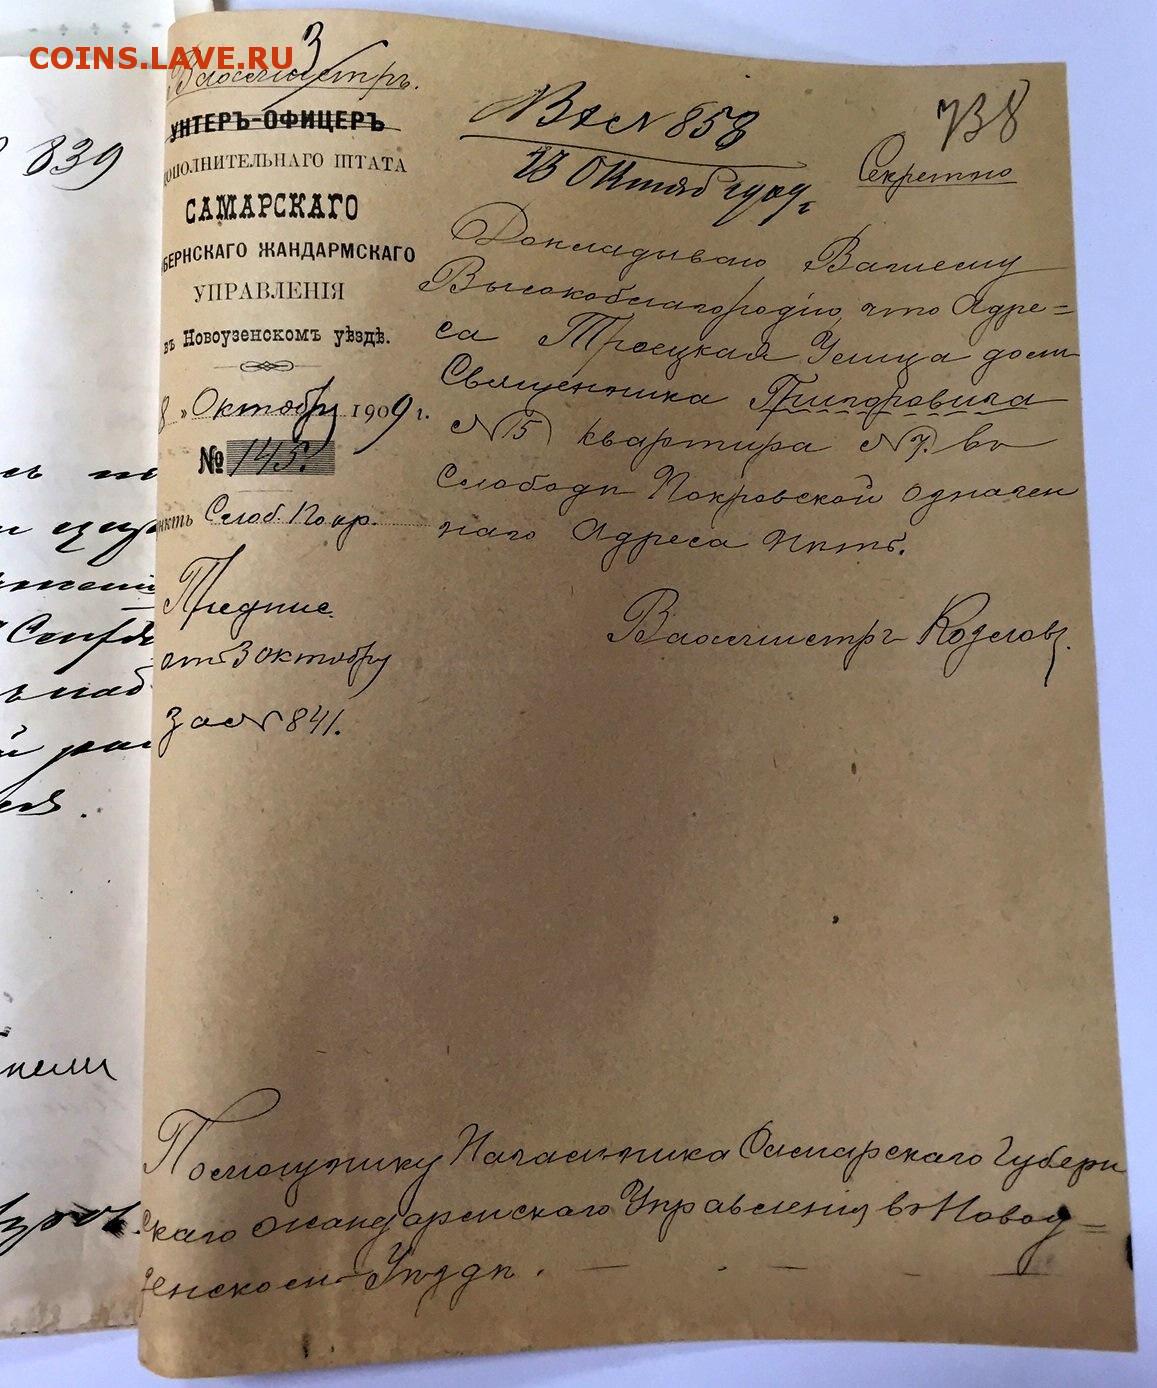 COINS.LAVE.RU
3
Вахмистръ.
УНТЕРЪ-ОФИЦЕРЪ
ДОПОЛНИТЕЛЬНАГО ШТАТА
САМАРСКАГО
БЕРНСКАГО ЖАНДАРМСКАГО
УПРАВЛЕНІЯ
въ Новоузенскомъ уѣздѣ.
8 » Октября 1909 г.
№ 145.
нктъ Слоб. Покр.
Предпис.
отъ 3 октября
за № 841.
Вх № 858
13 Октяб 1909 г.
738
Секретно
Докладываю Вашему
Высокоблагородію, что Адре=
са Троецкая Улица домъ
Священника Григоровича
№ 15 квартира № 7. въ
Слободѣ Покровской означен
наго Адреса нѣтъ.
Вахмистръ Козловъ.
Помощнику Начальника Самарскаго Губерн
скаго жандармскаго Управленія въ Новоу=
зенскомъ Уѣздѣ.
839